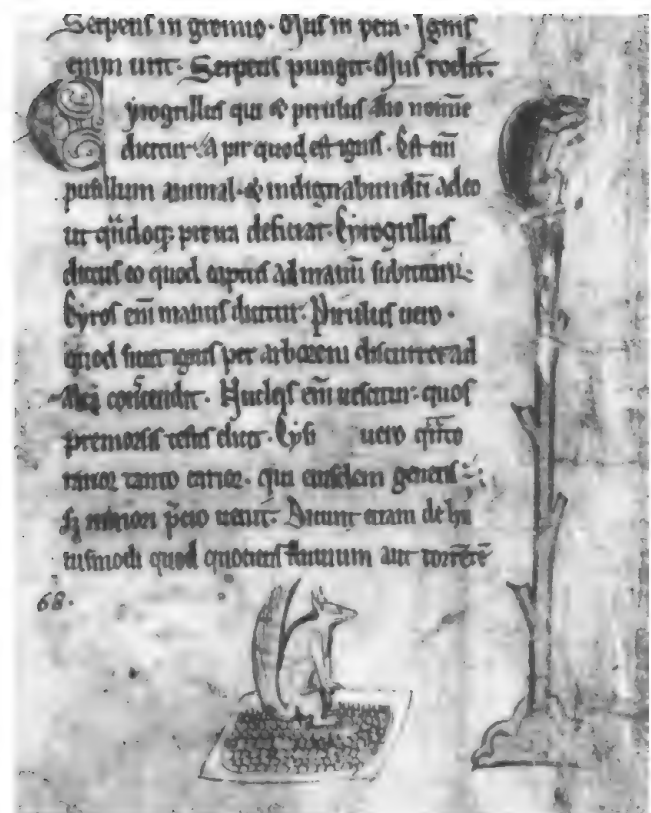 Serpens in gremio. Mus in pera. Ignis
enim urit. Serpens pungit. Mus rodit.
Cyrogrillus qui & pirulus alio noīe
dicitur. A pir quod est ignis. Est eni͂
pusillum animal. & indignabundū adeo
ut qn̄doq; pre ira deficiat. Cyrogrillus
dictus eo quod captus ad manū
Cyros eni͂ manus dicitur. Pirulus uero.
quod sicut ignis per arborem discurrit ad
contendit. Nucleis eni͂ uescitur. quos
premorsis testis elicit. uero qn̄to
rarior tanto carior. qui eiusdem generis
s; minori p̄cio uenit. Dicunt etiam de hu
iusmodi quod quotiens fluuium aut torrētē
68.